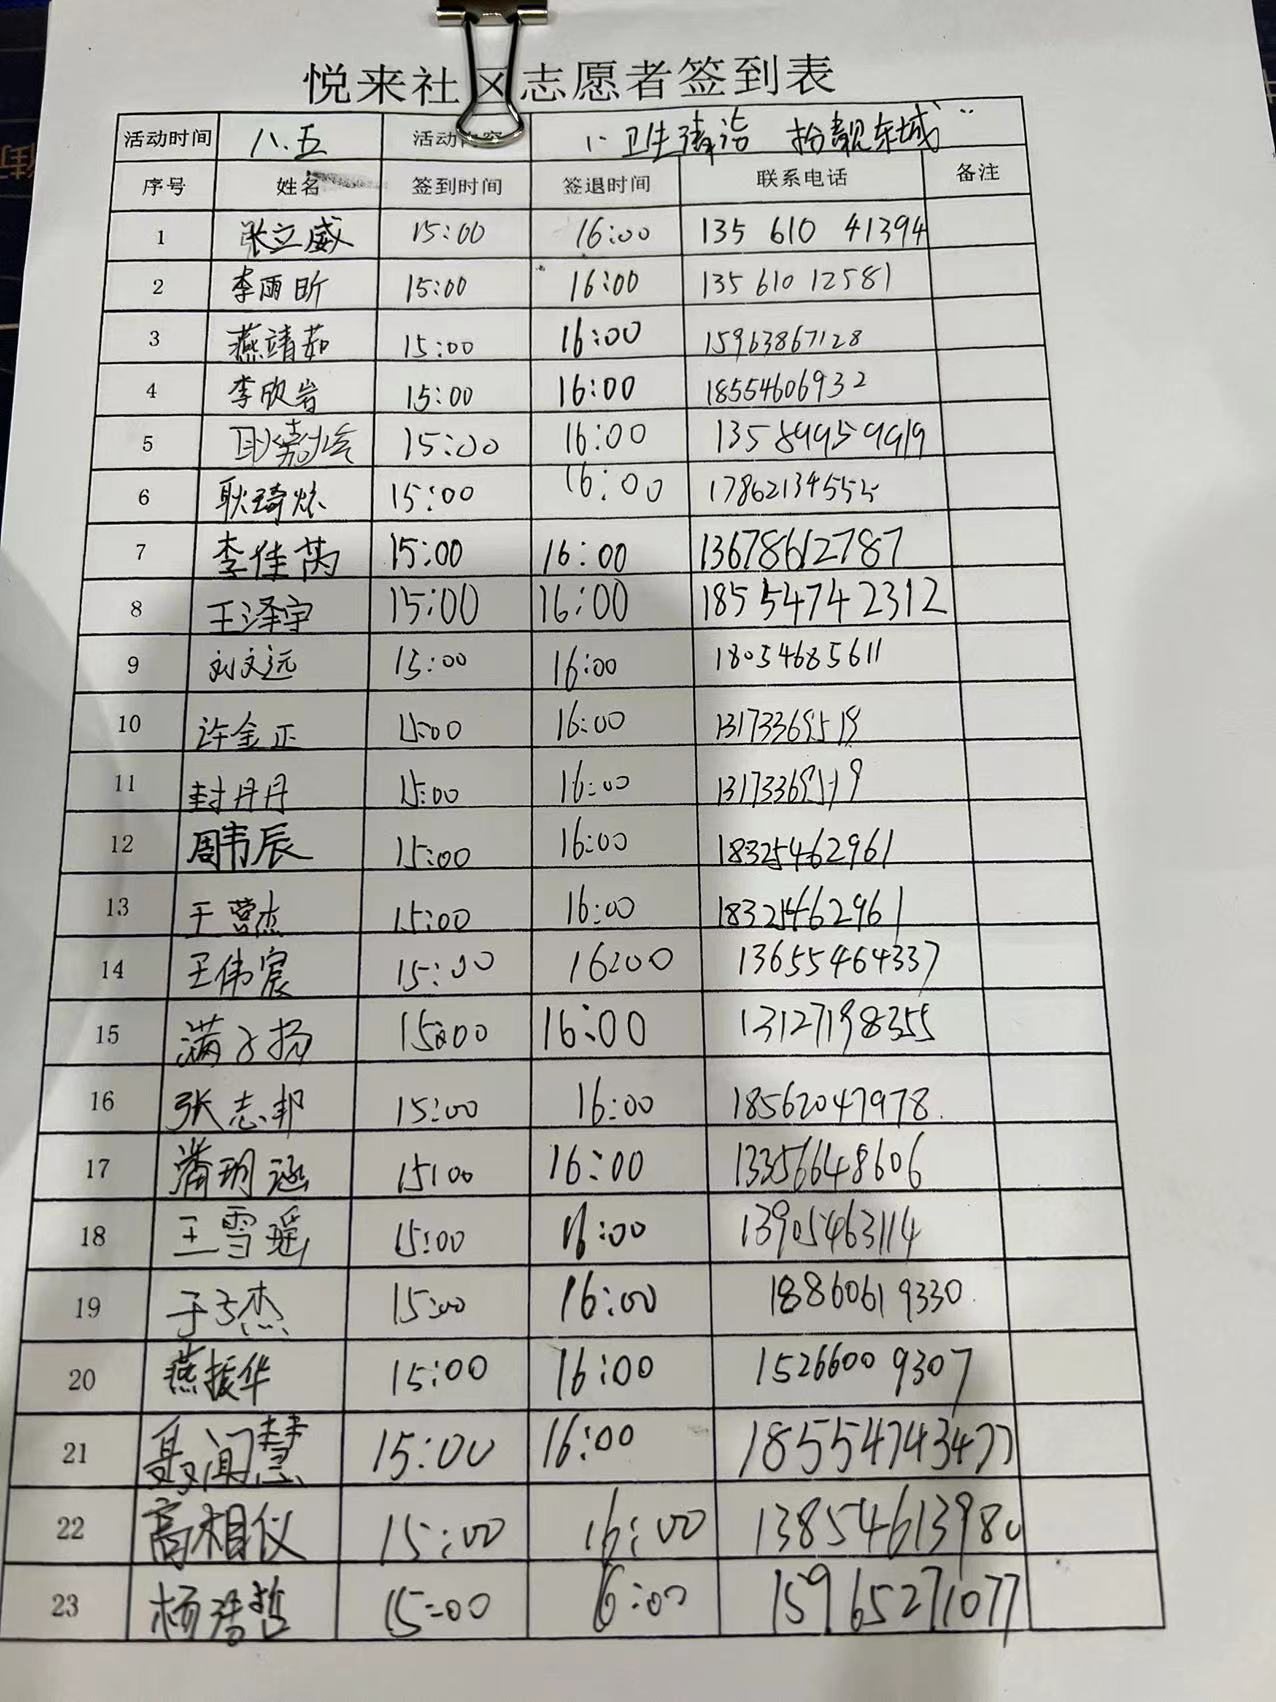 悦来社区志愿者签到表
活动时间 八.五 活动内容 "卫生清洁 扮靓东城"
序号 姓名 签到时间 签退时间 联系电话 备注
1 张立威 15:00 16:00 135 610 41394
2 李雨昕 15:00 16:00 135 610 12581
3 燕靖茹 15:00 16:00 15963867128
4 李欣岩 15:00 16:00 18554606932
5 15:00 16:00 13589959919
6 耿琦 15:00 16:00 17862134555
7 李佳芮 15:00 16:00 13678612787
8 王泽宇 15:00 16:00 18554742312
9 刘文远 15:00 16:00 18054685611
10 许金正 15:00 16:00 13173369519
11 封丹丹 15:00 16:00 13173369519
12 周韦辰 15:00 16:00 18325462961
13 于营杰 15:00 16:00 18325462961
14 王伟宸 15:00 16:00 13655464337
15 满子扬 15:00 16:00 13127198355
16 张志邦 15:00 16:00 18562047978.
17 蒲玥涵 15:00 16:00 13356648606
18 王雪瑶 15:00 16:00 13905463114
19 于子杰 15:00 16:00 18860619330.
20 燕振华 15:00 16:00 15266009307
21 聂闻慧 15:00 16:00 18554743477
22 高相仪 15:00 16:00 13854613980
23 杨浩哲 15:00 16:00 15965271077